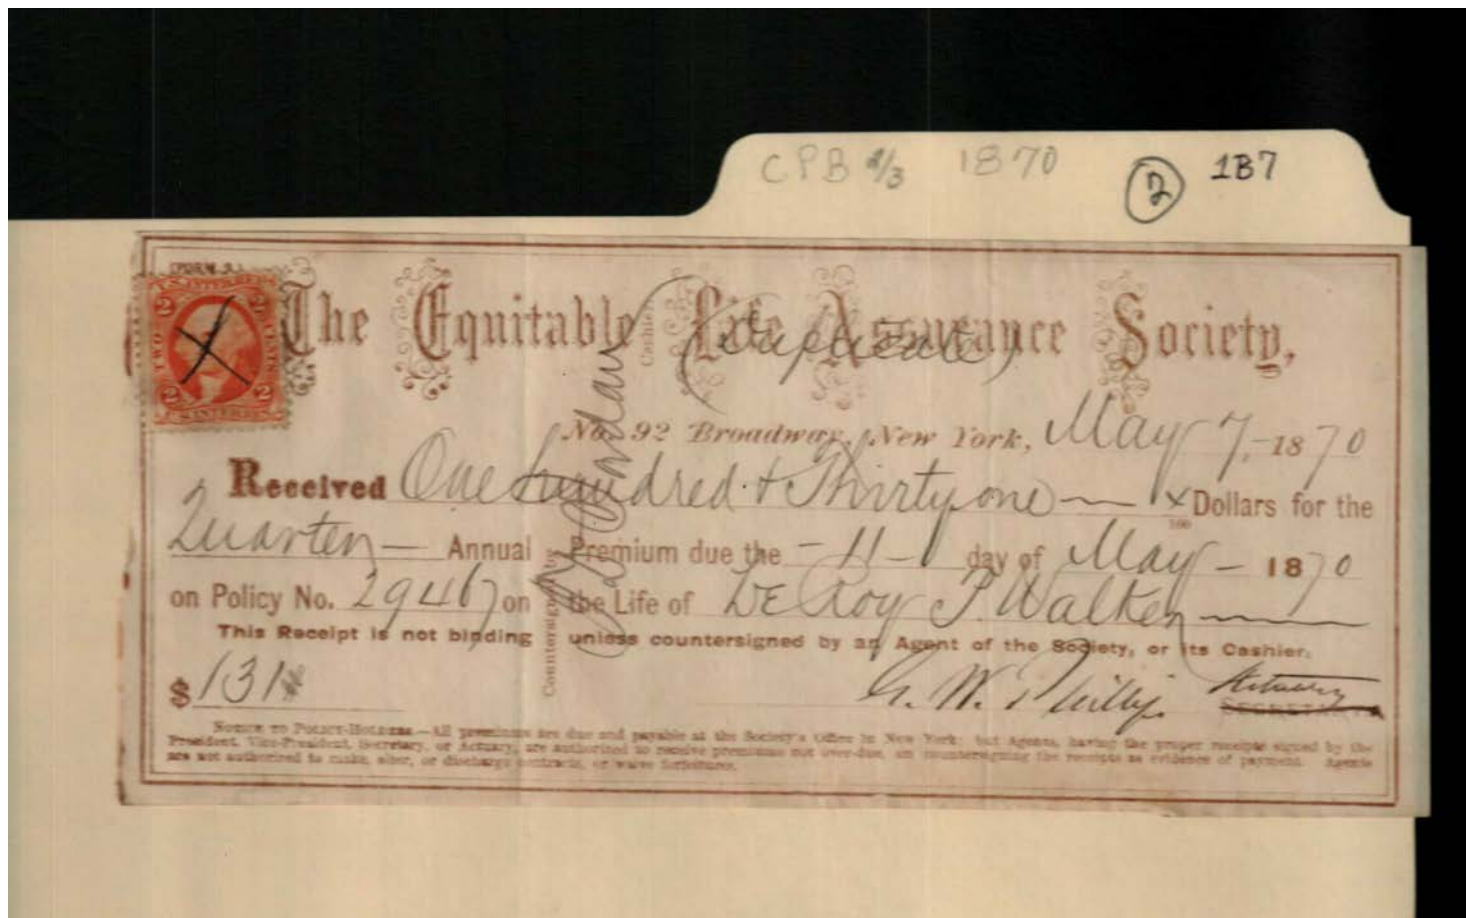 CPB 2/3 1870 2 1B7
(FORM A.)
U.S. INTER. REV.
2 2
TWO CENTS
2 2
U.S. INTER. REV.
The Equitable Life Assurance Society,
(Duplicate)
No. 92 Broadway, New York, May 7, - 1870
Received One hundred & Thirty one — x/100 Dollars for the
Quarter — Annual Premium due the - 11 - day of May - 1870
on Policy No. 29467 on the Life of De Roy P. Walker
This Receipt is not binding unless countersigned by an Agent of the Society, or its Cashier.
$131
G. W. Phillips. Actuary
SECRETARY
Countersigned by
Cashier
NOTICE TO POLICY-HOLDERS.—All premiums are due and payable at the Society's Office in New York; but Agents, having the proper receipts signed by the
President, Vice-President, Secretary, or Actuary, are authorized to receive premiums not over-due, on countersigning the receipts as evidence of payment. Agents
are not authorized to make, alter, or discharge contracts, or waive forfeitures.